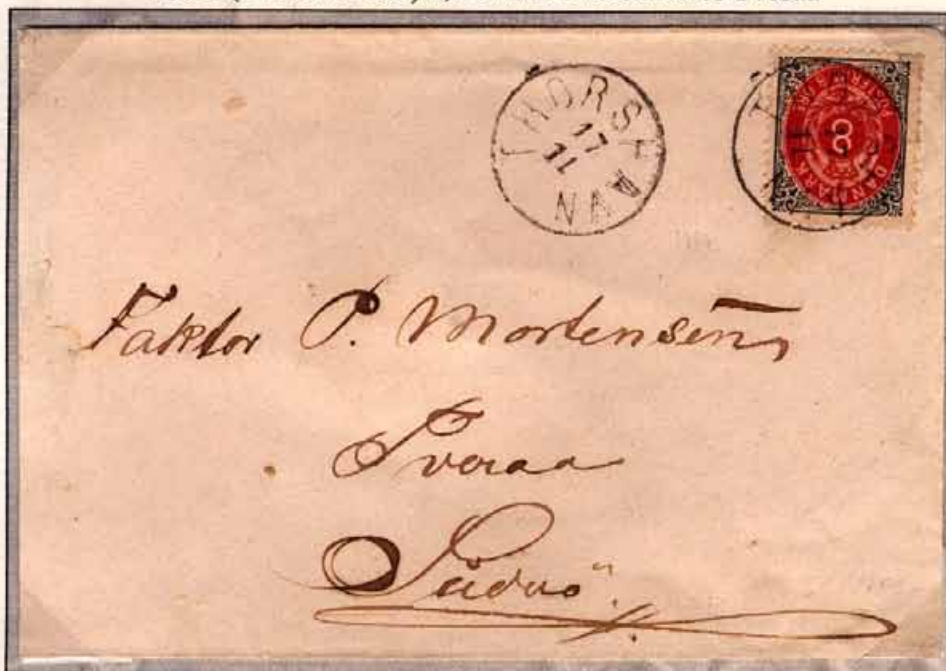 THORSHAVN
17
11
8
DANMARK
Faktor P. Mortensen,
Tveraa
Süderö